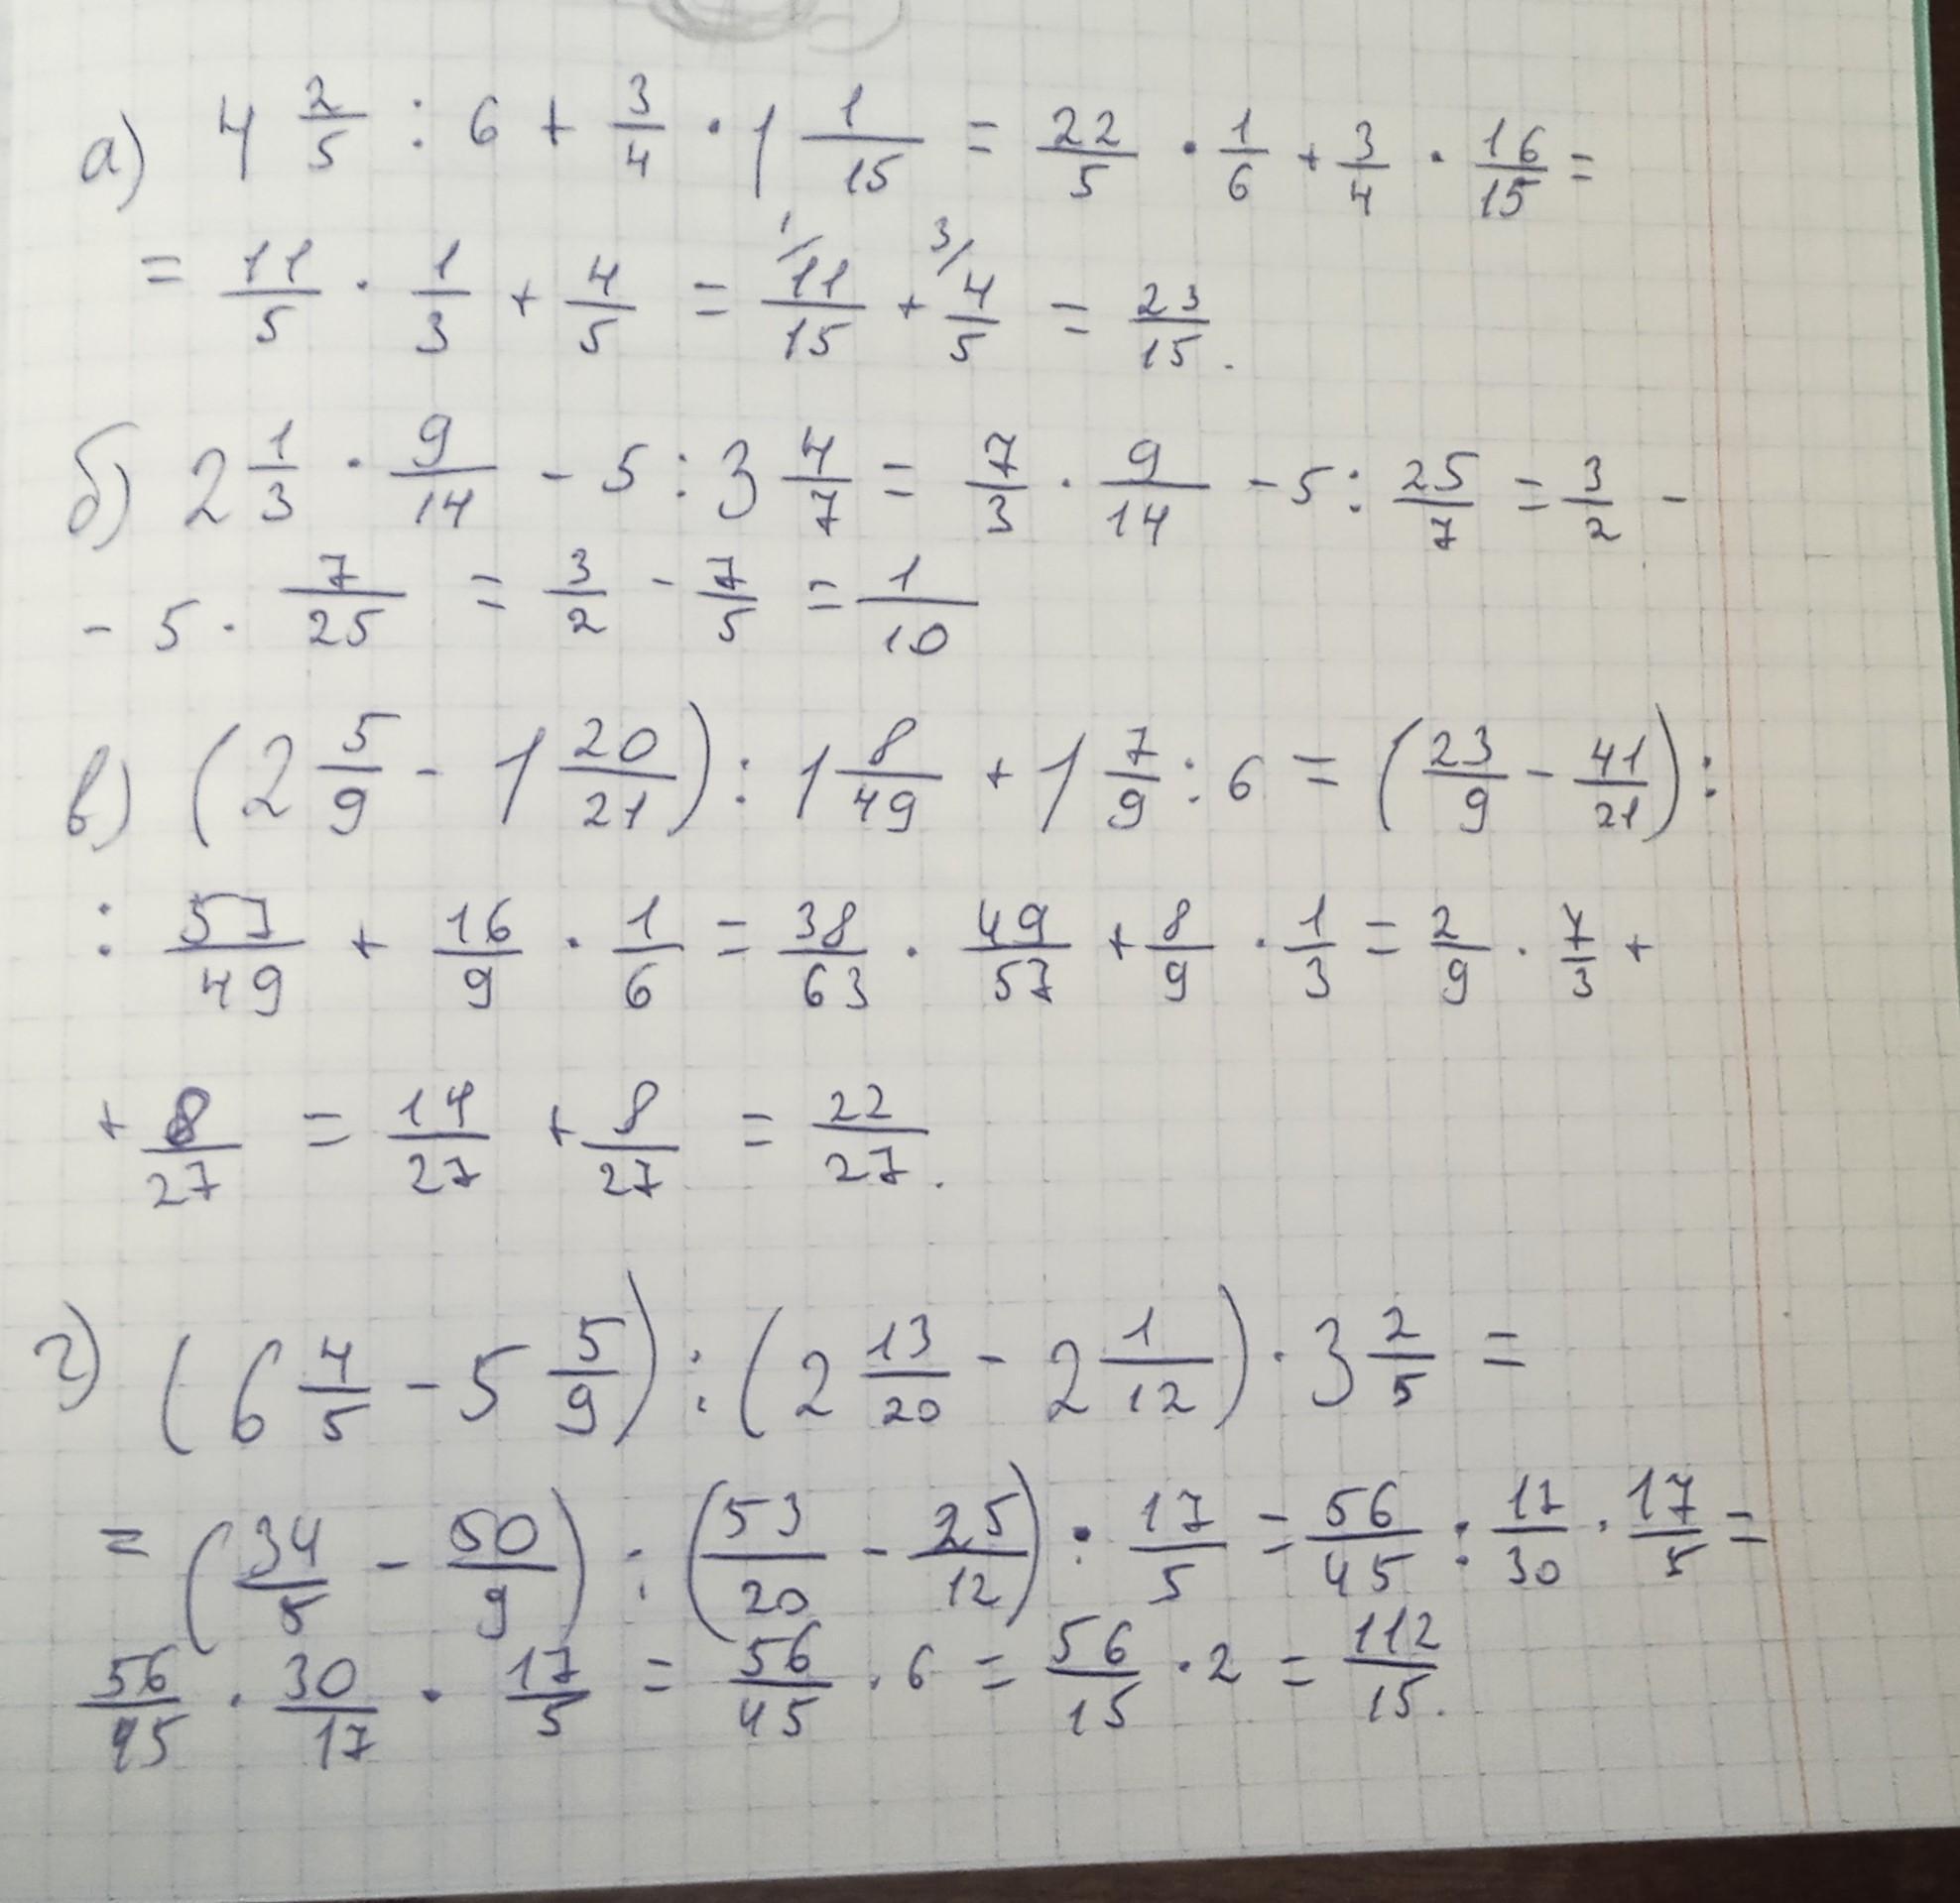 а) 4 2/5 : 6 + 3/4 · 1 1/15 = 22/5 · 1/6 + 3/4 · 16/15 =
= 11/5 · 1/3 + 4/5 = 1/ 11/15 + 3/ 4/5 = 23/15.
б) 2 1/3 · 9/14 - 5 : 3 4/7 = 7/3 · 9/14 - 5 : 25/7 = 3/2 -
- 5 · 7/25 = 3/2 - 7/5 = 1/10
в) (2 5/9 - 1 20/21) : 1 8/49 + 1 7/9 : 6 = (23/9 - 41/21) :
: 57/49 + 16/9 · 1/6 = 38/63 · 49/57 + 8/9 · 1/3 = 2/9 · 7/3 +
+ 8/27 = 14/27 + 8/27 = 22/27.
г) (6 4/5 - 5 5/9) : (2 13/20 - 2 1/12) · 3 2/5 =
= (34/5 - 50/9) : (53/20 - 25/12) · 17/5 = 56/45 : 17/30 · 17/5 =
56/45 · 30/17 · 17/5 = 56/45 · 6 = 56/15 · 2 = 112/15.